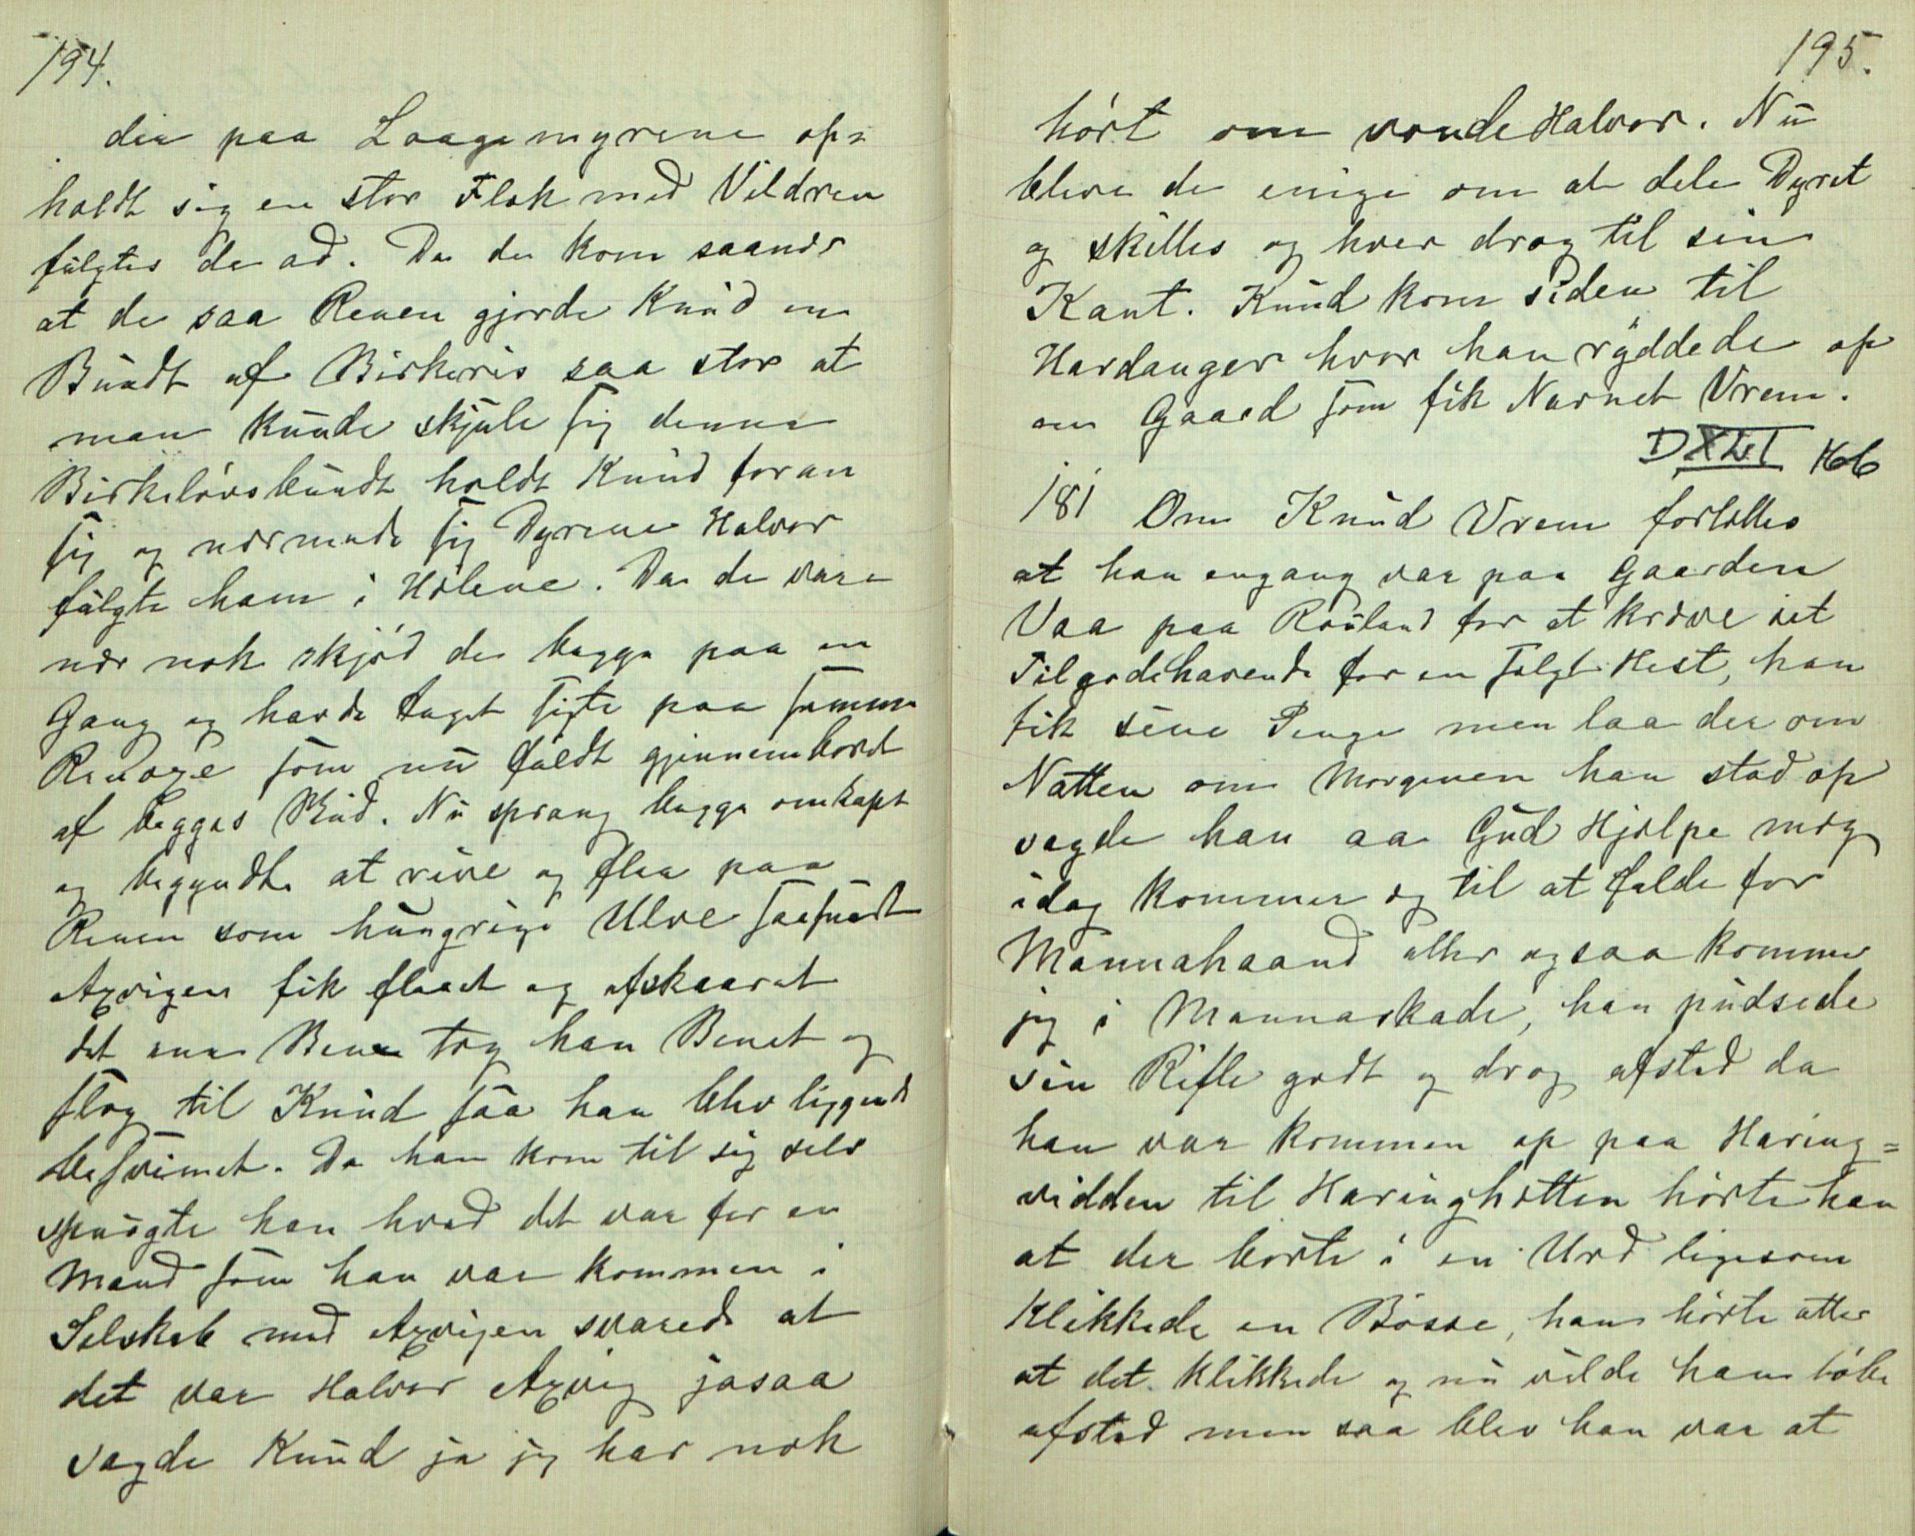 194.
der paa Laagemyrene op=
holdt sig en stor Flok med Vildren
fulgtes de ad. Da de kom saanær
at de saa Renen gjorde Knud en
Bundt af Birkeris saa stor at
man kunde skjule sig denne
Birkeløvsbundt holdt Knud foran
sig og nærmede sig Dyrene Halvor
fulgte ham i Hælene. Da de vare
nær nok skjød de begge paa en
Gang og havde taget sigte paa samme
Renoxe som nu faldt gjennemboret
af begges Skud. Nu sprang begge omkapt
og begyndte at rive og flaa paa
Renen som hungrige Ulve saasnart
Axvigen fik flaaet og afskaaret
det ene Benet tog han Benet og
slog til Knud saa han blev liggende
besvimet. Da han kom til sig selv
spurgte han hvad det var for en
Mand som han var kommen i
Selskab med Axvigen svarede at
det var Halvor Axvig jasaa
sagde Knud ja jeg har nok
195.
hørt om vonde Halvor. Nu
bleve de enige om at dele Dyret
og skilles og hver drog til sin
Kant. Knud kom siden til
Hardanger hvor han ryddede op
en Gaard som fik Navnet Vrem.
181 Om Knud Vrem fortælles
at han engang var paa Gaarden
Vaa paa Rauland for at kræve iet
Tilgodehavende for en solgt Hest, han
fik sine Penge men laa der om
Natten om Morgenen han stod op
sagde han aa Gud Hjælpe mig
idag kommer eg til at falde for
Mannahaand eller ogsaa kommer
jeg i Mannaskade, han pudsede
sin Rifle godt og drog afsted da
han var kommen op paa Høring=
vidden til Høringhøtten hørte han
at der borte i en Urd ligesom
klikkede en Bøsse, han hørte atter
at det klikkede og nu vilde han løbe
afsted men saa blev han var at